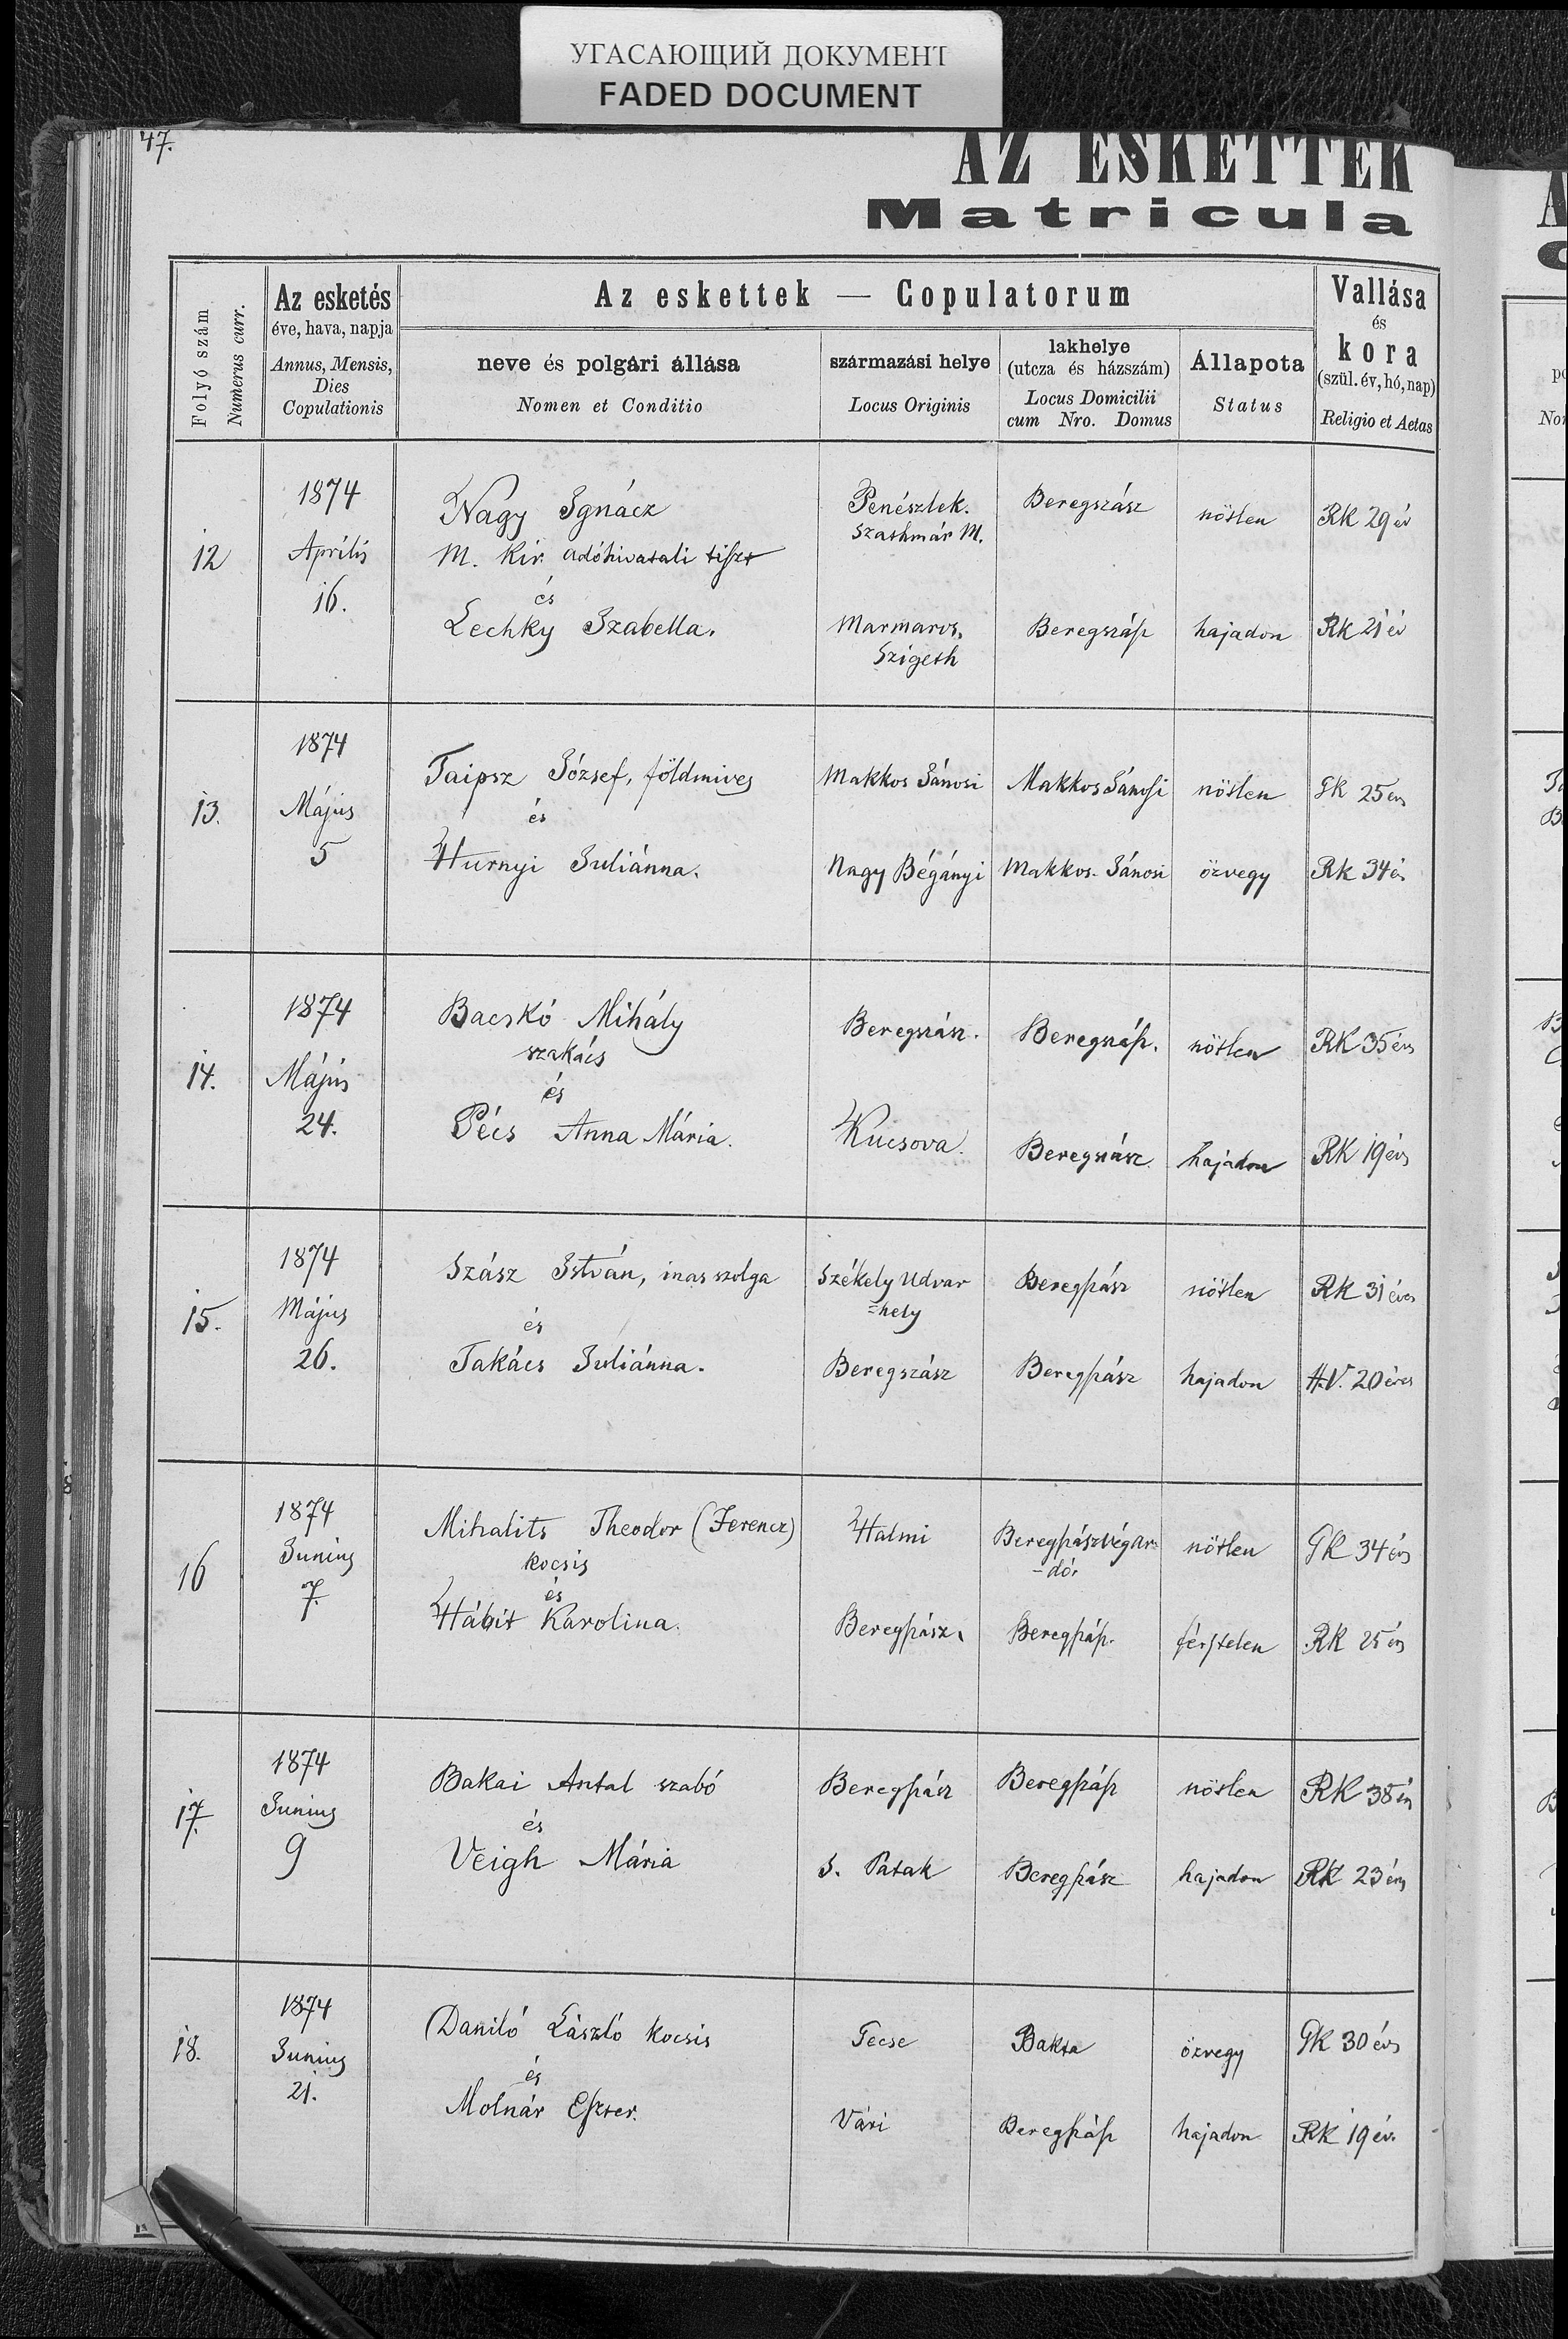 УГАСАЮЩИЙ ДОКУМЕНТ
FADED DOCUMENT
47.
AZ ESKETTEK
Matricula
Folyó szám
Numerus curr.
Az esketés
éve, hava, napja
Annus, Mensis,
Dies
Copulationis
Az eskettek — Copulatorum
neve és polgári állása
Nomen et Conditio
származási helye
Locus Originis
lakhelye
(utcza és házszám)
Locus Domicilii
cum Nro. Domus
Állapota
Status
Vallása
és
kora
(szül. év, hó, nap)
Religio et Aetas
12
1874
Április
16.
Nagy Ignácz
M. Kir. adóhivatali tiszt
és
Lechky Izabella.
Penészlek.
Szathmár M.
Beregszász
nötlen
RK 29 év
Marmaros,
Szigeth
Beregszász
hajadon
RK 21 év
13.
1874
Május
5
Taipsz József, földmives
és
Hurnyi Juliánna.
Makkos Jánosi
Makkos Jánosi
nötlen
GK 25 éves
Nagy Bégányi
Makkos-Jánosi
özvegy
RK 34 év
14.
1874
Május
24.
Bacskó Mihály
szakács
és
Pécs Anna Mária.
Beregszász.
Beregszász.
nötlen
RK 35 éves
Kucsova.
Beregszász.
hajadon
RK 19 éves
15.
1874
Május
26.
Szász István, inas szolga
és
Takács Juliánna.
Székely Udvar
=hely
Beregszász
nötlen
RK 31 éves
Beregszász
Beregszász
hajadon
H.V. 20 éves
16
1874
Junius
7.
Mihalits Theodor (Ferencz)
kocsis
és
Hábit Karolina.
Halmi
Beregszászvégar=
-dó.
nötlen
GK 34 éves
Beregszász.
Beregszász.
férjtelen
RK 25 éves
17.
1874
Junius
9
Bakai Antal szabó
és
Veigh Mária
Beregszász
Beregszász
nötlen
RK 38 éves
S. Patak
Beregszász
hajadon
RK 23 éves
18.
1874
Junius
21.
Daniló László kocsis
és
Molnár Eszter.
Tecse
Bakta
özvegy
GK 30 éves
Vári
Beregszász
hajadon
RK 19 év.